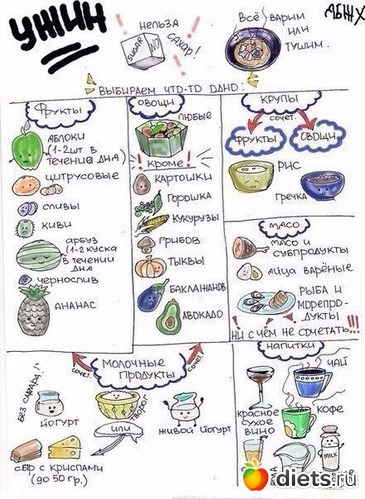 УЖИН
НЕЛЬЗЯ
САХАР!
SUGAR
NO
ВСЁ ВАРИМ
ИЛИ
ТУШИМ.
АБЖХ
ВЫБИРАЕМ ЧТО-ТО ОДНО.
ФРУКТЫ
ЯБЛОКИ
(1-2ШТ В
ТЕЧЕНИИ ДНЯ)
ЦИТРУСОВЫЕ
СЛИВЫ
КИВИ
АРБУЗ
(1-2 КУСКА
В ТЕЧЕНИИ
ДНЯ
ЧЕРНОСЛИВ
АНАНАС
ОВОЩИ
ЛЮБЫЕ
! КРОМЕ !
КАРТОШКИ
ГОРОШКА
КУКУРУЗЫ
ГРИБОВ
ТЫКВЫ
БАКЛАЖАНОВ
АВОКАДО
КРУПЫ
СОЧЕТ.
ФРУКТЫ
ОВОЩИ
РИС
ГРЕЧКА
МЯСО
МЯСО И
СУБПРОДУКТЫ
ЯЙЦА ВАРЁНЫЕ
РЫБА И
МОРЕПРО-
ДУКТЫ
НИ С ЧЕМ НЕ СОЧЕТАТЬ!!!
МОЛОЧНЫЕ
ПРОДУКТЫ
СОЧЕТ.
СОЧЕТ.
БЕЗ САХАРА!
ЙОГУРТ
ИЛИ
ТВОРОГ
ЖИВОЙ ЙОГУРТ
СЫР С КРИСПАМИ
(ДО 50 ГР.)
НАПИТКИ
ЧАЙ
КРАСНОЕ
СУХОЕ
ВИНО
КОФЕ
MILK
diets.ru